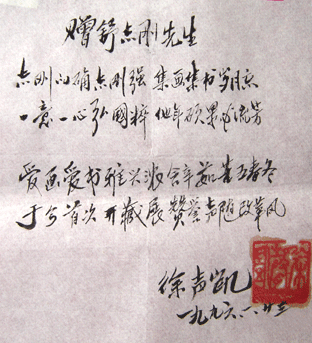 赠舒志刚先生
志刚的确志刚强 集画集书岁月
一意一心弘国粹 他年硕果必流芳
爱画爱书雅兴浓 含辛茹苦春冬
于今首次开藏展 赞誉嘉随改革风
徐声凯
一九九六.八.廿三